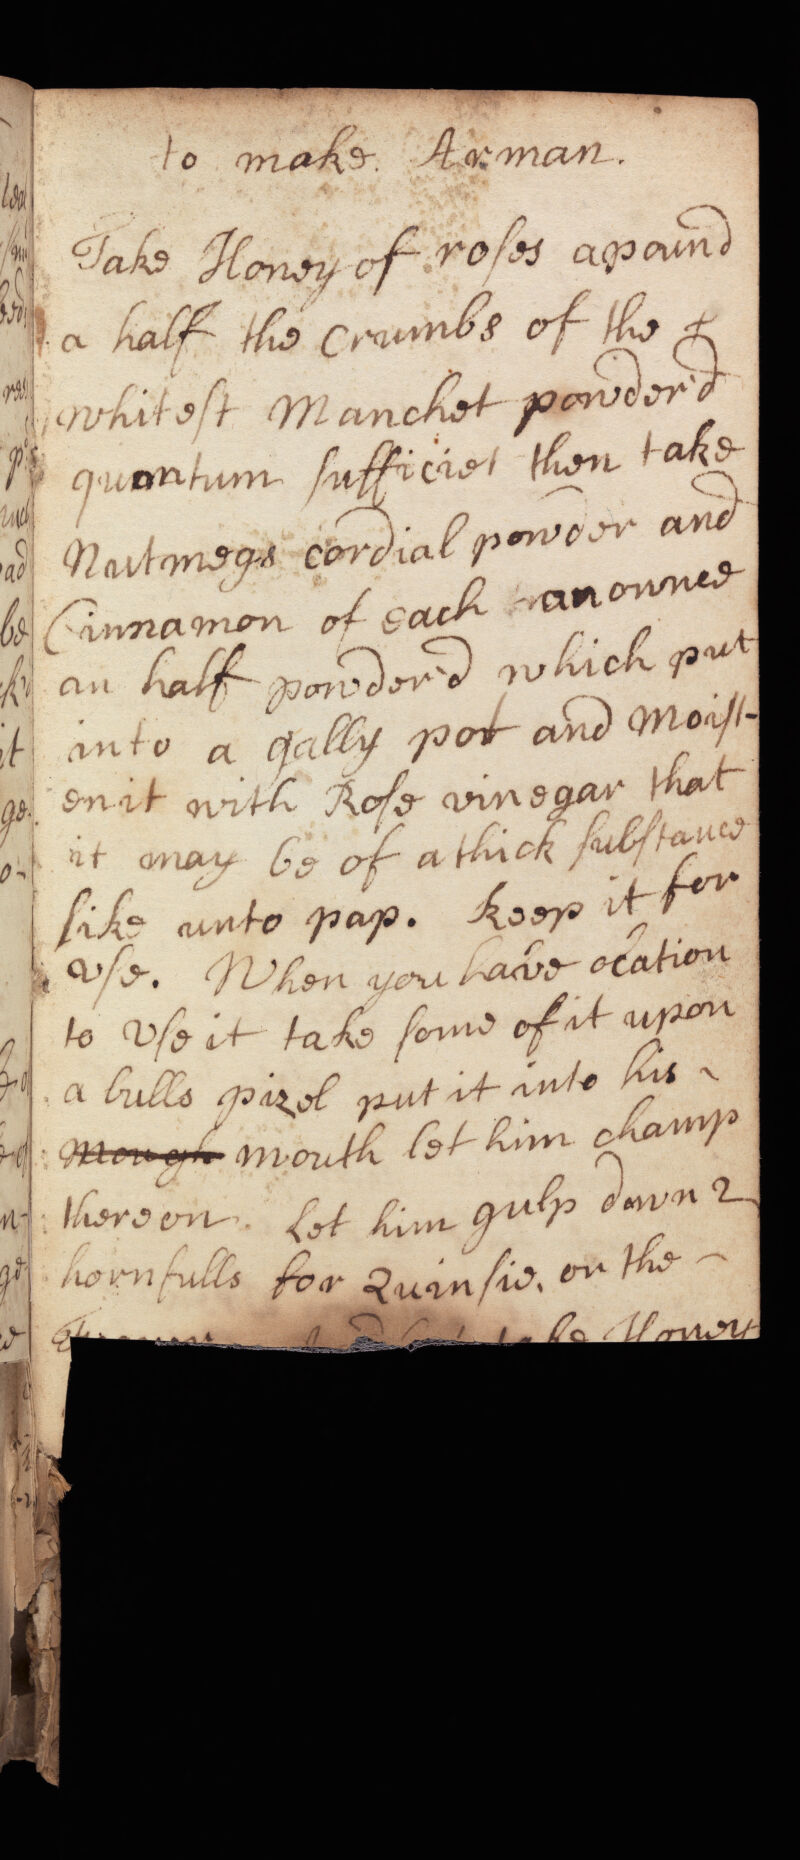 to make Arman.
Take Honey of roses a pound
a half the Crumbs of the
whitest Manchet powder'd
quantum sufficiet then take
Nutmegs cordial powder and
Cinnamon of each an ounce
an half powder'd which put
into a gally pot and Moist-
en it with Rose vinegar that
it may be of a thick substance
like unto pap. Keep it for
Vse. When you have ocation
to Vse it take some of it upon
a bulls pizel put it into his
Mough mouth let him champ
thereon. Let him gulp down 2
hornfulls for Quinsie, or the
take Honey